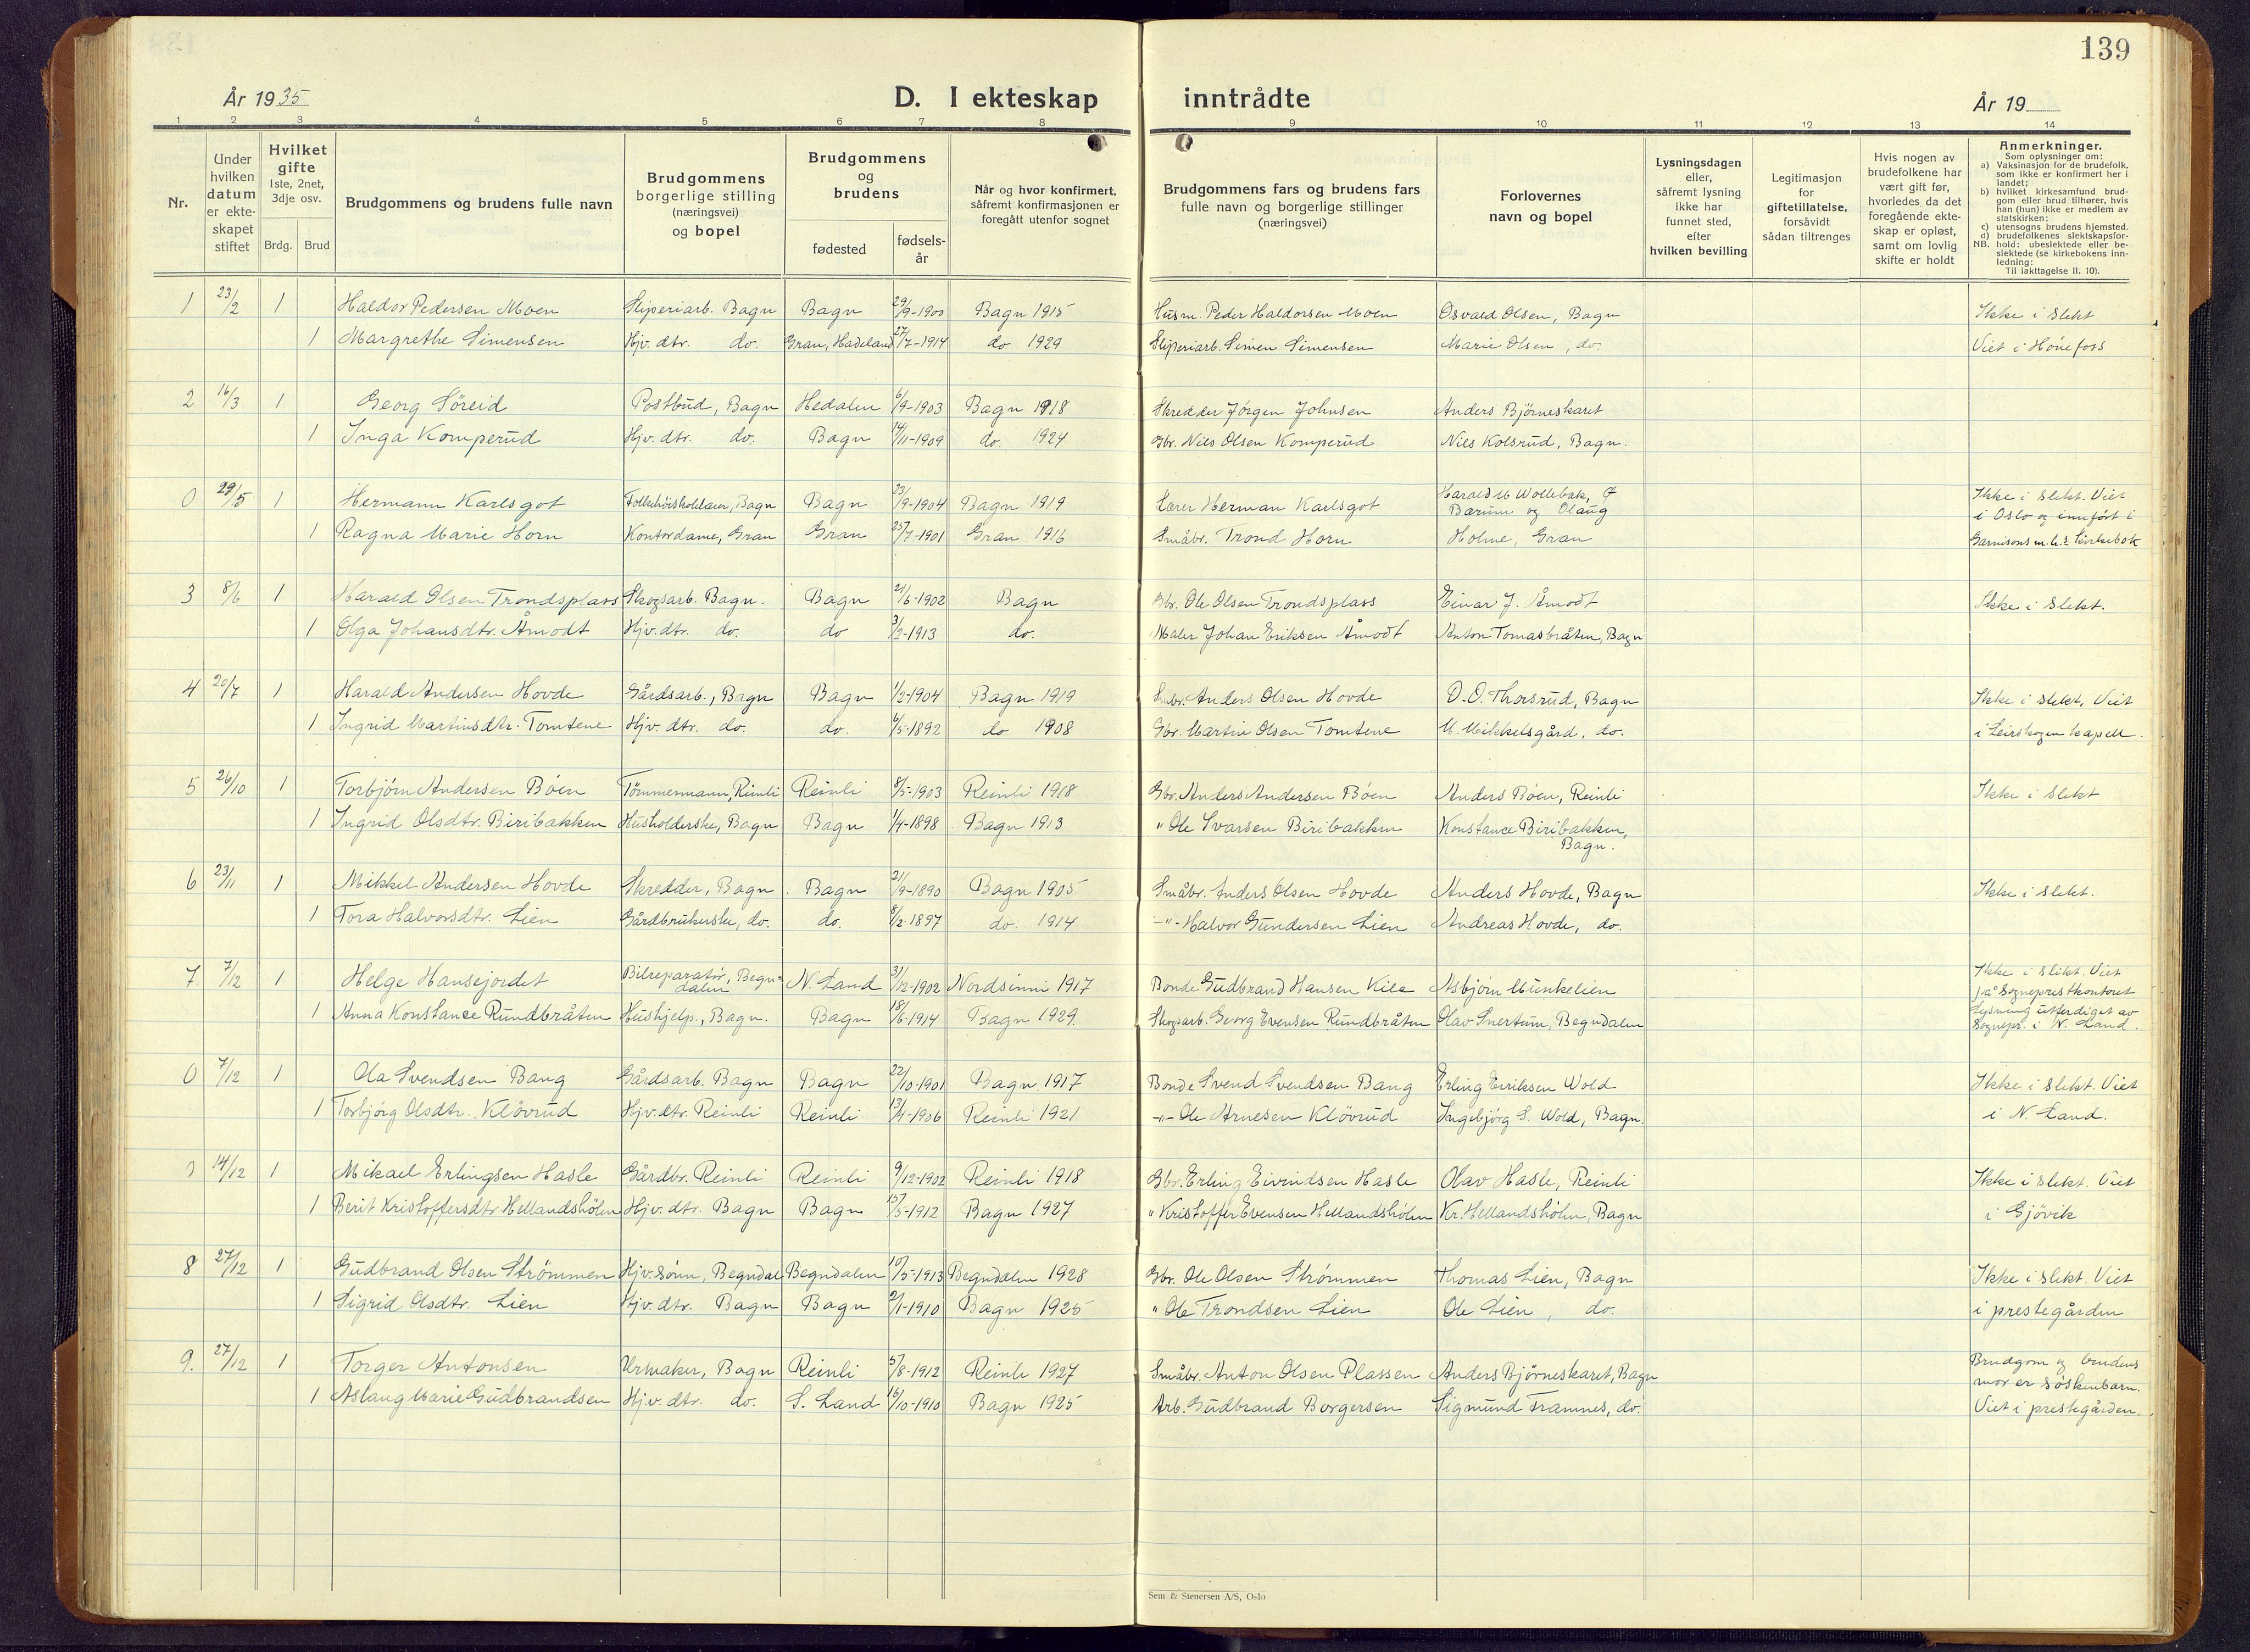 139
År 1935
D. I ekteskap inntrådte
År 19
1 2 3 4 5 6 7 8 9 10 11 12 13 14
Nr.
Under hvilken datum er ekteskapet stiftet
Hvilket gifte 1ste, 2net, 3dje osv.
Brdg. Brud
Brudgommens og brudens fulle navn
Brudgommens borgerlige stilling (næringsvei) og bopel
Brudgommens og brudens
fødested
fødselsår
Når og hvor konfirmert, såfremt konfirmasjonen er foregått utenfor sognet
Brudgommens fars og brudens fars fulle navn og borgerlige stillinger (næringsvei)
Forlovernes navn og bopel
Lysningsdagen eller, såfremt lysning ikke har funnet sted, efter hvilken bevilling
Legitimasjon for giftetillatelse, forsåvidt sådan tiltrenges
Hvis nogen av brudefolkene har vært gift før, hvorledes da det foregående ekteskap er opløst, samt om lovlig skifte er holdt
Anmerkninger.
Som oplysninger om:
a) Vaksinasjon for de brudefolk, som ikke er konfirmert her i landet;
b) hvilket kirkesamfund brudgom eller brud tilhører, hvis han (hun) ikke er medlem av statskirken;
c) utensogns brudens hjemsted.
d) brudefolkenes slektskapsforhold: ubeslektede eller beslektede (se kirkebokens innledning:
NB. Til iakttagelse II. 10).
1 23/2 1 Haldor Pedersen Moen Sliperiarb. Bagn Bagn 29/9-1900 Bagn 1915 Husm. Peder Haldorsen Moen Osvald Olsen, Bagn Ikke i slekt
1 Margrethe Simensen Hjv. dtr. do. Gran, Hadeland 27/7-1914 do 1929 Sliperiarb. Simen Simensen Marie Olsen, do. Viet i Hönefoss
2 16/3 1 Georg Söreid Postbud, Bagn Hedalen 6/9-1903 Bagn 1918 Skredder Jörgen Johnsen Anders Björneskaret
1 Inga Komperud Hjv. dtr. do. Bagn 14/11-1909 do. 1924 Gbr. Niels Olsen Komperud Nils Kolsrud, Bagn.
0 29/5 1 Hermann Karlsgot Bagn Bagn 23/9-1904 Bagn 1919 Lærer Herman Karlsgot Harald M Wollebæk, Bærum og Olaug Ikke i slekt. Viet i Oslo og innfört i
1 Ragna Marie Horn Kontordame, Gran Gran 25/7-1901 Gran 1916 Småbr. Trond Horn Holme, Gran Garnisons m.h.s kirkebok
3 8/6 1 Harald Olsen Trondsplass Skogsarb. Bagn. Bagn 21/6-1902 Bagn Gbr. Ole Olsen Trondsplass Einar J. Åmodt Ikke i slekt.
1 Olga Johansdtr. Åmodt Hjv. dtr. do. do 3/2-1913 do. Maler Johan Eriksen Åmodt Anton Tomasbråten, Bagn
4 20/7 1 Harald Andersen Hovde Gårdsarb., Bagn Bagn 1/2-1904 Bagn 1919 Småbr. Anders Olsen Hovde O. O. Thorsrud, Bagn Ikke i slekt, Viet
1 Ingrid Martinsdtr. Tomtene Hjv. dtr. do. do. 6/5-1892 do 1908 Gbr. Martin Olsen Tomtene M. Mikkelsgård, do. i Leirskogen kapell.
5 26/10 1 Torbjörn Andersen Böen Tömmermann, Reinli Reinli 8/5-1903 Reinli 1918 Gbr. Anders Andersen Böen Anders Böen, Reinli Ikke i slekt
1 Ingrid Olsdtr. Biribakken Husholderske, Bagn Bagn 1/4-1898 Bagn 1913 " Ole Ivarsen Biribakken Konstance Biribakken, Bagn.
6 23/11 1 Mikkel Andersen Hovde Skredder, Bagn Bagn 21/9-1890 Bagn 1905 Småbr. Anders Olsen Hovde Anders Hovde, Bagn Ikke i slekt.
1 Tora Halvorsdtr. Lien Gårdbrukerske, do. do. 8/2-1897 do. 1914 -"- Halvor Gundersen Lien Andreas Hovde, do.
7. 7/12 1 Helge Hansejordet Bilreparatör, Begndalen N. Land 31/12-1902 Nordsinni 1917 Bonde Gudbrand Hansen Kile Asbjörn Munkelien Ikke i slekt. Viet på Sogneprestkontoret
1 Anna Konstance Rundbråten Hushjelp., Bagn. Bagn 18/6-1914 Bagn 1929. Skogsarb. Georg Evensen Rundbråten Olav Snertum, Begndalen Lysning utferdiget av Sognepr. i N. Land.
0 7/12 1 Ola Svendsen Bang Gårdsarb. Bagn Bagn 22/10-1901 Bagn 1917 Bonde Svend Svendsen Bang Erling Eiriksen Wold Ikke i slekt. Viet
1 Torbjörg Olsdtr. Klövrud Hjv. dtr. Reinli Reinli 13/4-1906 Reinli 1921 -"- Ole Arnesen Klövrud Ingebjörg S. Wold, Bagn. i N. Land.
0 14/12 1 Mikael Erlingsen Hasle Gårdbr. Reinli Reinli 9/12-1902 Reinli 1918 Gbr. Erling Eivindsen Hasle Olav Hasle, Reinli Ikke i slekt. Viet
1 Berit Kristoffersdtr. Hellandshölen Hjv. dtr. Bagn Bagn 15/5-1912 Bagn 1927 " Kristoffer Evensen Hellandshölen Kr. Hellandshölen, Bagn i Gjövik
8 27/12 1 Gudbrand Olsen Strömmen Hjv. sönn, Begndal Begndalen 10/5-1913 Begndalen 1928 Gbr. Ole Olsen Strömmen Thomas Lien, Bagn Ikke i slekt. Viet
1 Sigrid Olsdtr. Lien Hjv. dtr. Bagn Bagn 2/1-1910 Bagn 1925 " Ole Trondsen Lien Ole Lien, do. i prestegården
9. 27/12 1 Torger Antonsen Urmaker, Bagn Reinli 5/8-1912 Reinli 1927 Småbr. Anton Olsen Plassen Anders Björneskaret, Bagn Brudgom og brudens mor er söskenbarn.
1 Aslaug Marie Gudbrandsen Hjv. dtr. do. S. Land 16/10-1910 Bagn 1925 Arb. Gudbrand Borgersen Sigmund Framnes, do. Viet i prestegården.
Sem & Stenersen A/S, Oslo